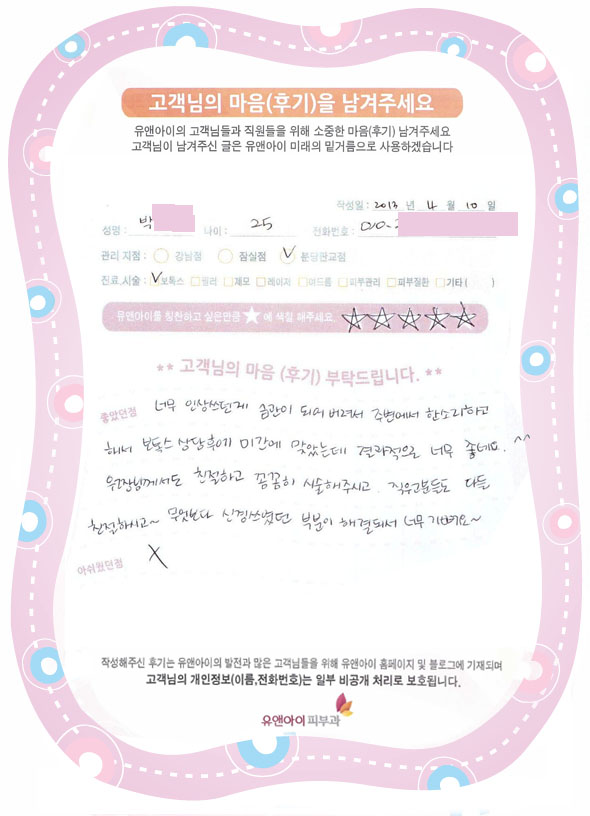 고객님의 마음(후기)을 남겨주세요
유앤아이의 고객님들과 직원들을 위해 소중한 마음(후기) 남겨주세요
고객님이 남겨주신 글은 유앤아이 미래의 밑거름으로 사용하겠습니다
작성일 : 2013 년 4 월 10 일
성명 : 박 나이 : 25 전화번호 : 010-
관리 지점 : 강남점 잠실점 ✓ 분당판교점
진료,시술 : ✓ 보톡스 필러 제모 레이저 여드름 피부관리 피부질환 기타 ( )
유앤아이를 칭찬하고 싶은만큼 ★ 에 색칠 해주세요 ☆☆☆☆☆
** 고객님의 마음 (후기) 부탁드립니다. **
좋았던점 너무 인상쓰던게 습관이 되어 버려서 주변에서 한소리하고
해서 보톡스 상담후에 미간에 맞았는데 결과적으로 너무 좋네요. ^^
원장님께서도 친절하고 꼼꼼히 시술해주시고 직원분들도 다들
친절하시고~ 무엇보다 신경쓰였던 부분이 해결되서 너무 기뻐요~
아쉬웠던점 X
작성해주신 후기는 유앤아이의 발전과 많은 고객님들을 위해 유앤아이 홈페이지 및 블로그에 기재되며
고객님의 개인정보(이름,전화번호)는 일부 비공개 처리로 보호됩니다.
유앤아이피부과